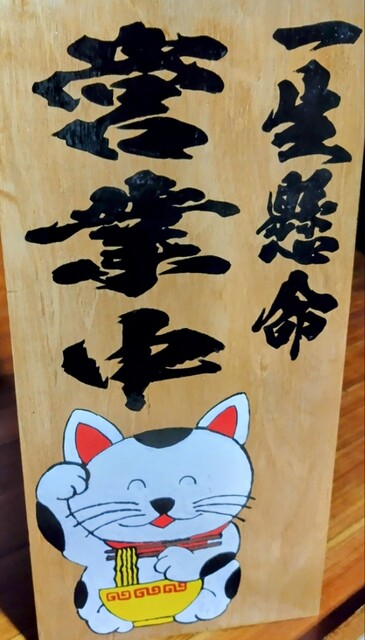 一生懸命
営業中